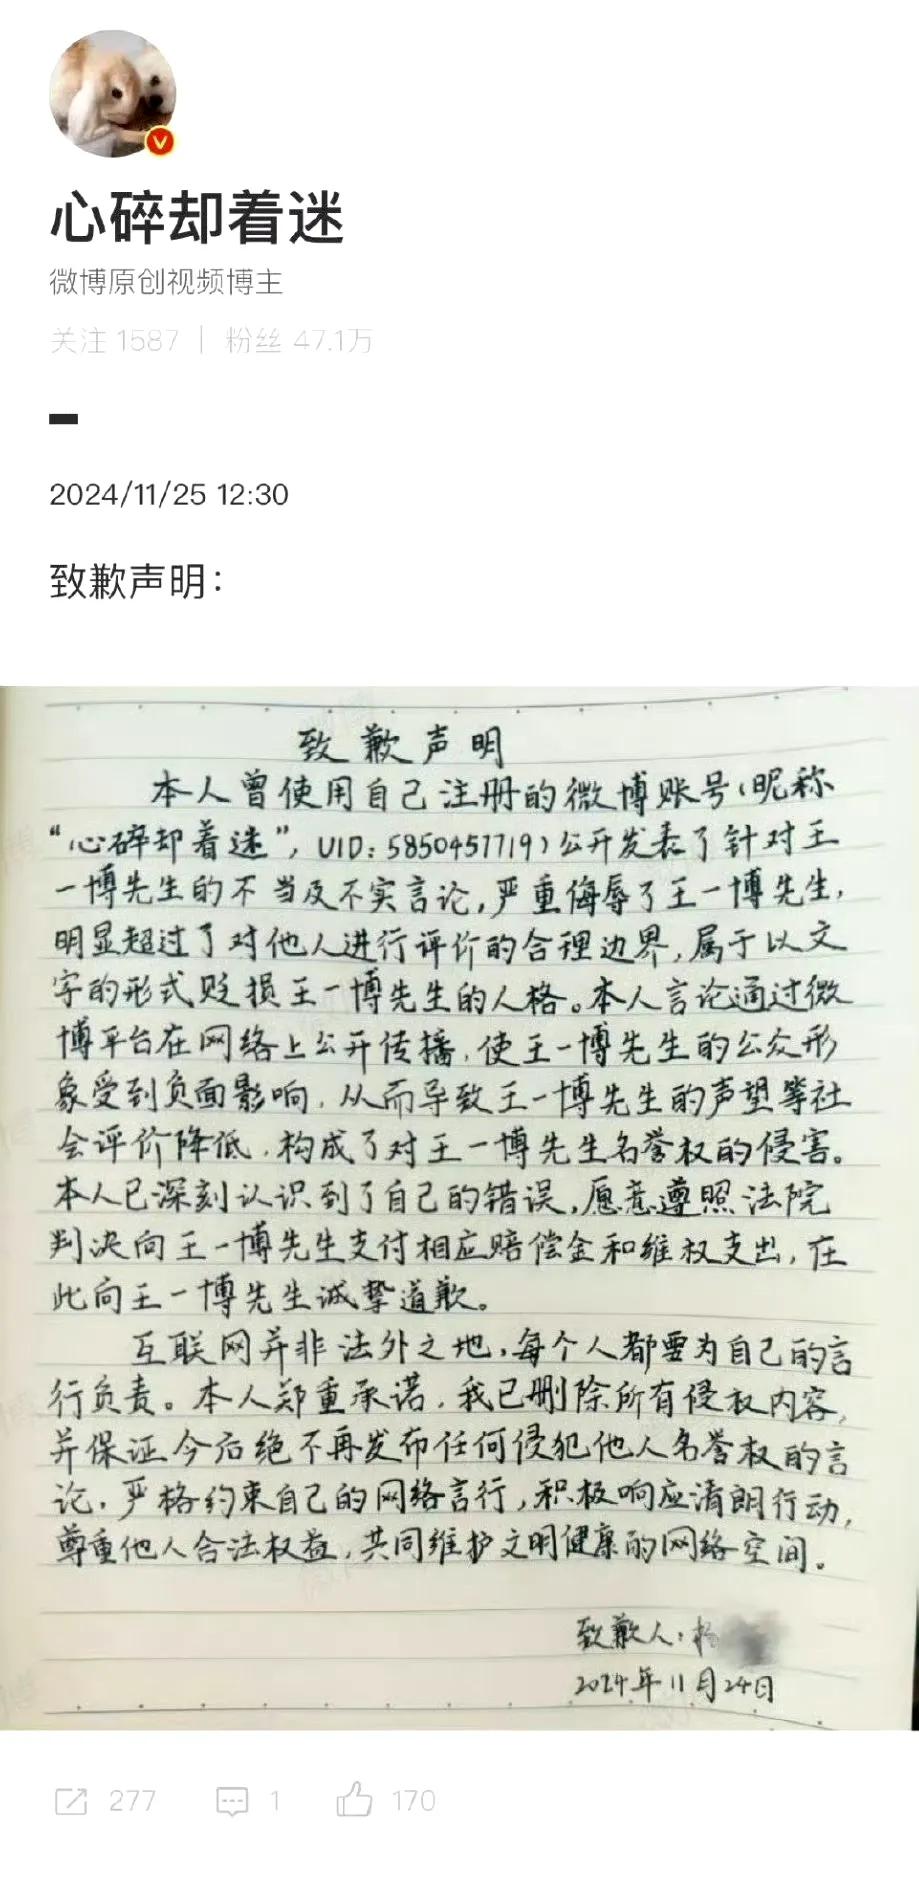 心碎却着迷
微博原创视频博主
关注 1587 | 粉丝 47.1万
2024/11/25 12:30
致歉声明：
致歉声明
本人曾使用自己注册的微博账号(昵称
“心碎却着迷”, UID: 5850457719)公开发表了针对王
一博先生的不当及不实言论,严重侮辱了王一博先生,
明显超过了对他人进行评价的合理边界,属于以文
字的形式贬损王一博先生的人格。本人言论通过微
博平台在网络上公开传播,使王一博先生的公众形
象受到负面影响,从而导致王一博先生的声望等社
会评价降低,构成了对王一博先生名誉权的侵害。
本人已深刻认识到了自己的错误,愿意遵照法院
判决向王一博先生支付相应赔偿金和维权支出,在
此向王一博先生诚挚道歉。
互联网并非法外之地,每个人都要为自己的言
行负责。本人郑重承诺,我已删除所有侵权内容,
并保证今后绝不再发布任何侵犯他人名誉权的言
论,严格约束自己的网络言行,积极响应清朗行动,
尊重他人合法权益,共同维护文明健康的网络空间。
致歉人:杨
2024年11月24日
277 1 170